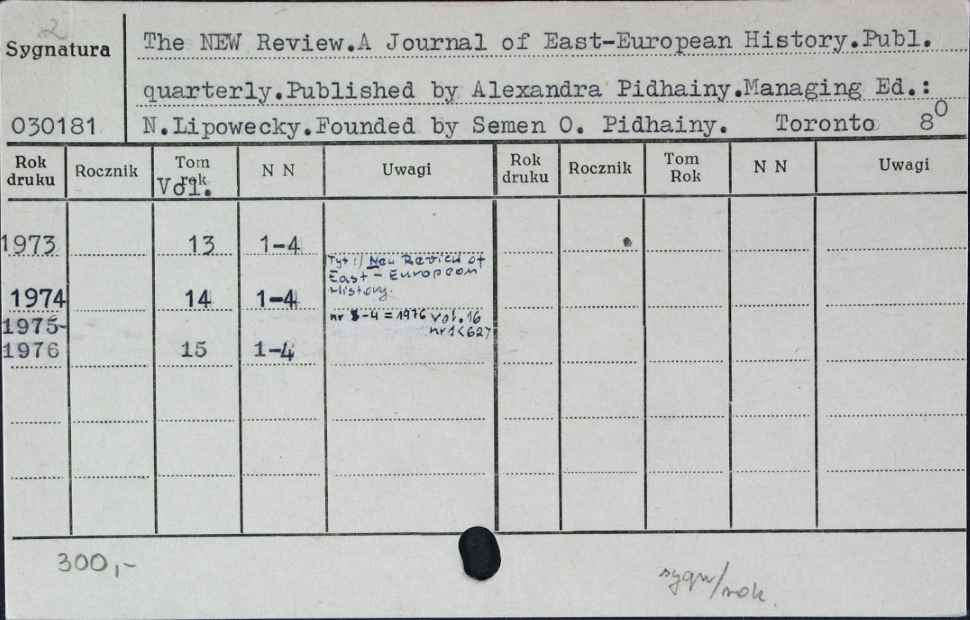 2
Sygnatura
The NEW Review.A Journal of East-European History.Publ.
quarterly.Published by Alexandra Pidhainy.Managing Ed.:
030181
N.Lipowecky.Founded by Semen O. Pidhainy. Toronto 8o
Rok druku Rocznik Tom rok Vol. N N Uwagi Rok druku Rocznik Tom Rok N N Uwagi
1973 13 1-4
Tyt:/ New Review of
East-European
History.
1974 14 1-4
nr 3-4 = 1976 vol. 16
1975-
nr 1 <62>
1976 15 1-4
300,-
sygn/rok.